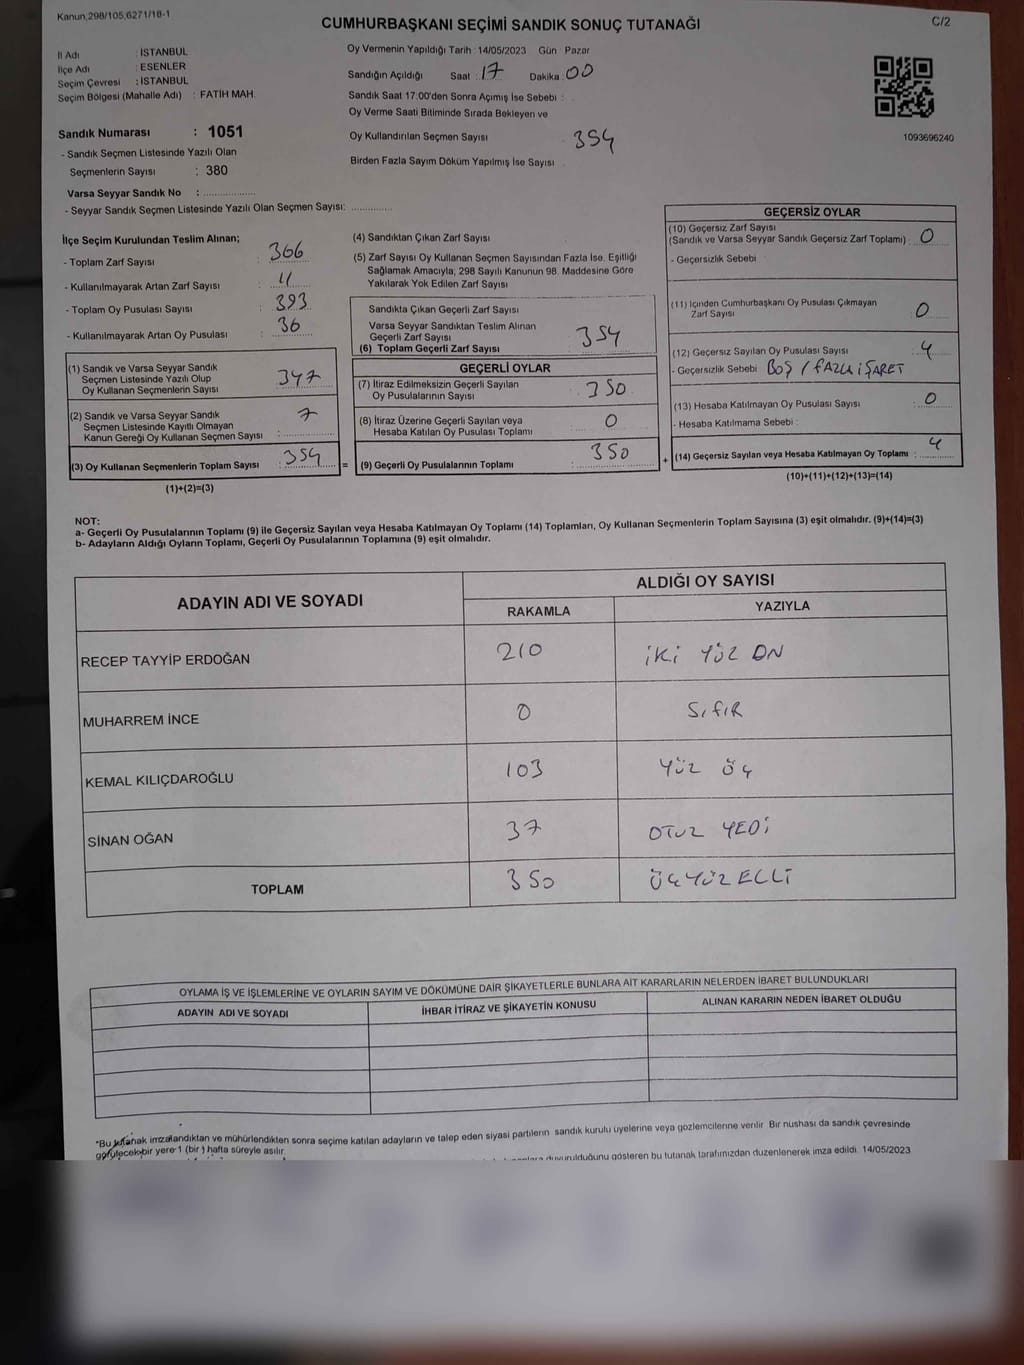 Kanun,298/105,6271/16-1
CUMHURBAŞKANI SEÇİMİ SANDIK SONUÇ TUTANAĞI
C/2
İl Adı : İSTANBUL
İlçe Adı : ESENLER
Seçim Çevresi : İSTANBUL
Seçim Bölgesi (Mahalle Adı) : FATİH MAH.
Oy Vermenin Yapıldığı Tarih : 14/05/2023 Gün Pazar
Sandığın Açıldığı Saat : 17 Dakika : 00
Sandık Saat 17:00'den Sonra Açımış İse Sebebi :
Oy Verme Saati Bitiminde Sırada Bekleyen ve
Oy Kullandırılan Seçmen Sayısı 354
Birden Fazla Sayım Döküm Yapılmış İse Sayısı
1093696240
Sandık Numarası : 1051
- Sandık Seçmen Listesinde Yazılı Olan
Seçmenlerin Sayısı : 380
Varsa Seyyar Sandık No : ...................
- Seyyar Sandık Seçmen Listesinde Yazılı Olan Seçmen Sayısı: ..............
İlçe Seçim Kurulundan Teslim Alınan;
- Toplam Zarf Sayısı : 366
- Kullanılmayarak Artan Zarf Sayısı : 11
- Toplam Oy Pusulası Sayısı : 393
- Kullanılmayarak Artan Oy Pusulası : 36
(1) Sandık ve Varsa Seyyar Sandık
Seçmen Listesinde Yazılı Olup
Oy Kullanan Seçmenlerin Sayısı 347
(2) Sandık ve Varsa Seyyar Sandık
Seçmen Listesinde Kayıtlı Olmayan
Kanun Gereği Oy Kullanan Seçmen Sayısı : 7
(3) Oy Kullanan Seçmenlerin Toplam Sayısı : 354
(1)+(2)=(3)
(4) Sandıktan Çıkan Zarf Sayısı
(5) Zarf Sayısı Oy Kullanan Seçmen Sayısından Fazla İse, Eşitliği
Sağlamak Amacıyla, 298 Sayılı Kanunun 98. Maddesine Göre
Yakılarak Yok Edilen Zarf Sayısı
Sandıkta Çıkan Geçerli Zarf Sayısı
Varsa Seyyar Sandıktan Teslim Alınan
Geçerli Zarf Sayısı
(6) Toplam Geçerli Zarf Sayısı 354
GEÇERLİ OYLAR
(7) İtiraz Edilmeksizin Geçerli Sayılan
Oy Pusulalarının Sayısı : 350
(8) İtiraz Üzerine Geçerli Sayılan veya
Hesaba Katılan Oy Pusulası Toplamı 0
= (9) Geçerli Oy Pusulalarının Toplamı : 350
GEÇERSİZ OYLAR
(10) Geçersiz Zarf Sayısı
(Sandık ve Varsa Seyyar Sandık Geçersiz Zarf Toplamı) : 0
- Geçersizlik Sebebi
(11) İçinden Cumhurbaşkanı Oy Pusulası Çıkmayan
Zarf Sayısı 0
(12) Geçersiz Sayılan Oy Pusulası Sayısı : 4
- Geçersizlik Sebebi : BOŞ / FAZLA İŞARET
(13) Hesaba Katılmayan Oy Pusulası Sayısı : 0
- Hesaba Katılmama Sebebi :
+ (14) Geçersiz Sayılan veya Hesaba Katılmayan Oy Toplamı : 4
(10)+(11)+(12)+(13)=(14)
NOT:
a- Geçerli Oy Pusulalarının Toplamı (9) ile Geçersiz Sayılan veya Hesaba Katılmayan Oy Toplamı (14) Toplamları, Oy Kullanan Seçmenlerin Toplam Sayısına (3) eşit olmalıdır. (9)+(14)=(3)
b- Adayların Aldığı Oyların Toplamı, Geçerli Oy Pusulalarının Toplamına (9) eşit olmalıdır.
ADAYIN ADI VE SOYADI
ALDIĞI OY SAYISI
RAKAMLA YAZIYLA
RECEP TAYYİP ERDOĞAN 210 İKİ YÜZ ON
MUHARREM İNCE 0 SIFIR
KEMAL KILIÇDAROĞLU 103 YÜZ ÜÇ
SİNAN OĞAN 37 OTUZ YEDİ
TOPLAM 350 ÜÇ YÜZ ELLİ
OYLAMA İŞ VE İŞLEMLERİNE VE OYLARIN SAYIM VE DÖKÜMÜNE DAİR ŞİKAYETLERLE BUNLARA AİT KARARLARIN NELERDEN İBARET BULUNDUKLARI
ADAYIN ADI VE SOYADI İHBAR İTİRAZ VE ŞİKAYETİN KONUSU ALINAN KARARIN NEDEN İBARET OLDUĞU
*Bu tutanak imzalandıktan ve mühürlendikten sonra seçime katılan adayların ve talep eden siyasi partilerin sandık kurulu üyelerine veya gözlemcilerine verilir. Bir nushası da sandık çevresinde
görülecek bir yere 1 (bir) hafta süreyle asılır.
duyurulduğunu gösteren bu tutanak tarafımızdan düzenlenerek imza edildi. 14/05/2023